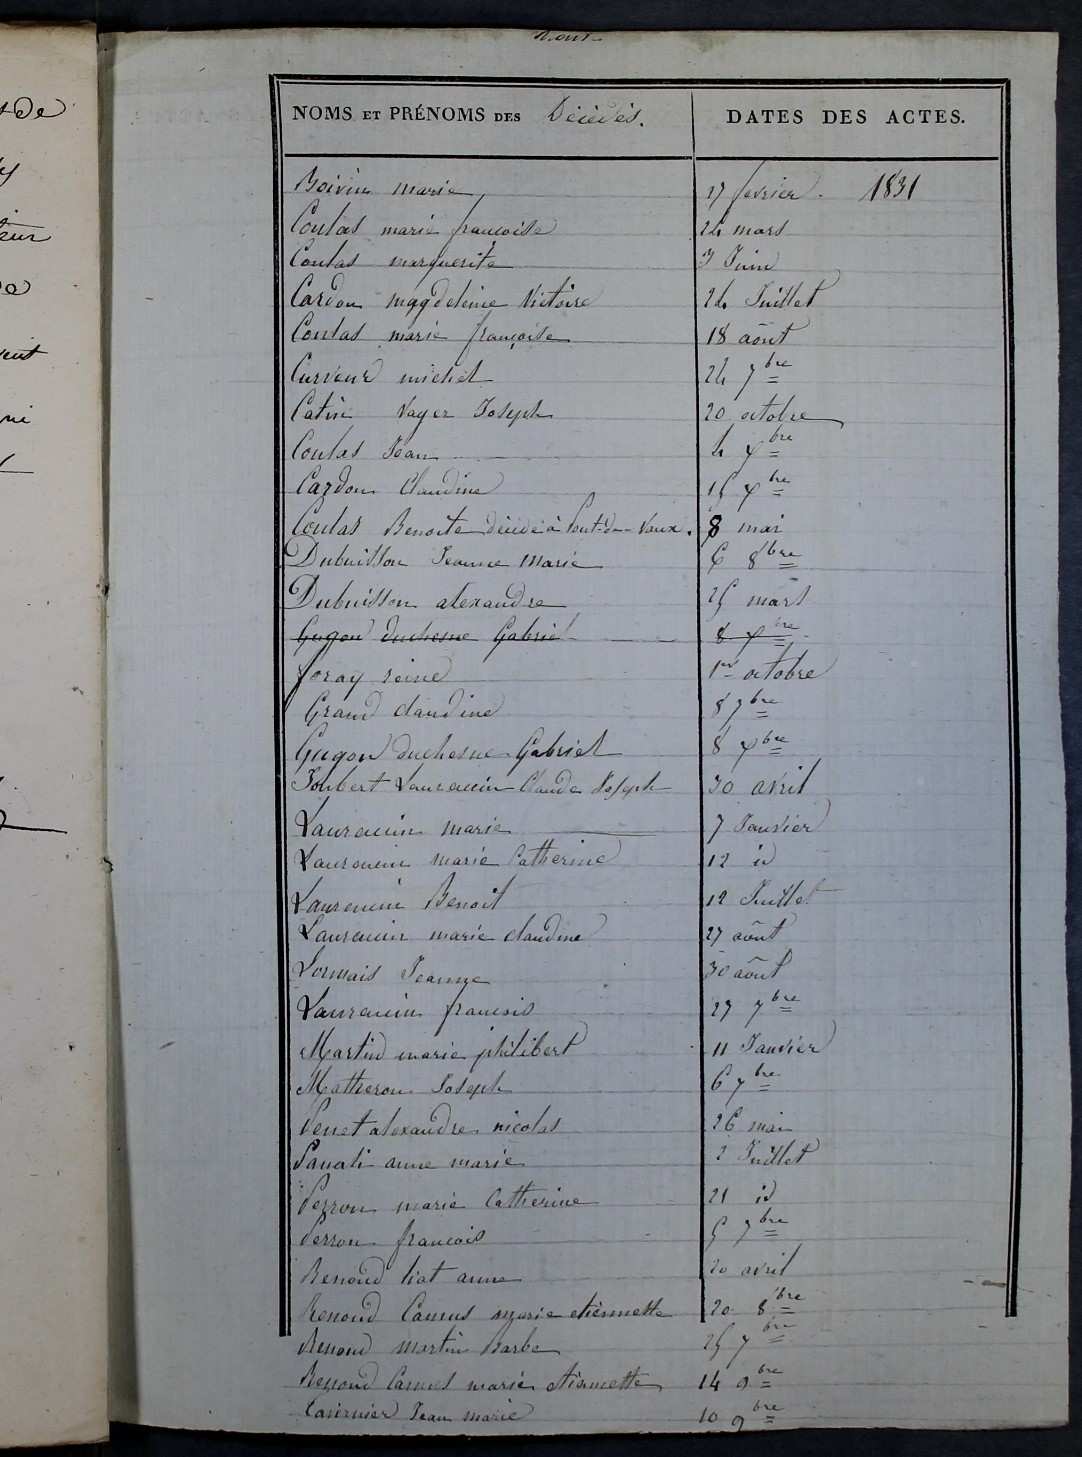 NOMS ET PRÉNOMS DES Décédés. DATES DES ACTES.
Boivin marie 17 fevrier. 1831
Coulas marie francoise 24 mars
Coulas marguerite 3 Juin
Cardon magdeleine Victoire 24 Juillet
Coulas marie françoise 18 aôut
Curveur michel 24 7bre
Catin Vayer Joseph 20 octobre
Coulas Jean 4 xbre
Cardon Claudine 15 xbre
Coulas Benoite décédé à Pont-de-Vaux. 8 mai
Dubuisson Jeanne Marie 6 8bre
Dubuisson alexandre 25 mars
Gugon duchesne Gabriel 8 xbre
foray reine 1er octobre
Grand claudine 8 7bre
Gugon duchesne Gabriel 8 xbre
Joubert Laurencin Claude Joseph 30 avril
Laurencin marie 7 Janvier
Laurencin marie Catherine 12 id
Laurencin Benoit 12 Juillet
Laurencin marie claudine 27 aôut
Lormais Jeanne 30 aôut
Laurencin francois 27 7bre
Martin marie philibert 11 Janvier
Matheron Joseph 6 7bre
Penet alexandre nicolas 26 mai
Panati anne marie 2 Juillet
Perron marie Catherine 21 id
Perron francois 5 7bre
Renoud liat anne 20 avril
Renoud Camus marie etiennette 20 8bre
Renoud martin Barbe 25 7bre
Renoud Camus marie etiennette 14 9bre
Tavernier Jean marie 10 9bre